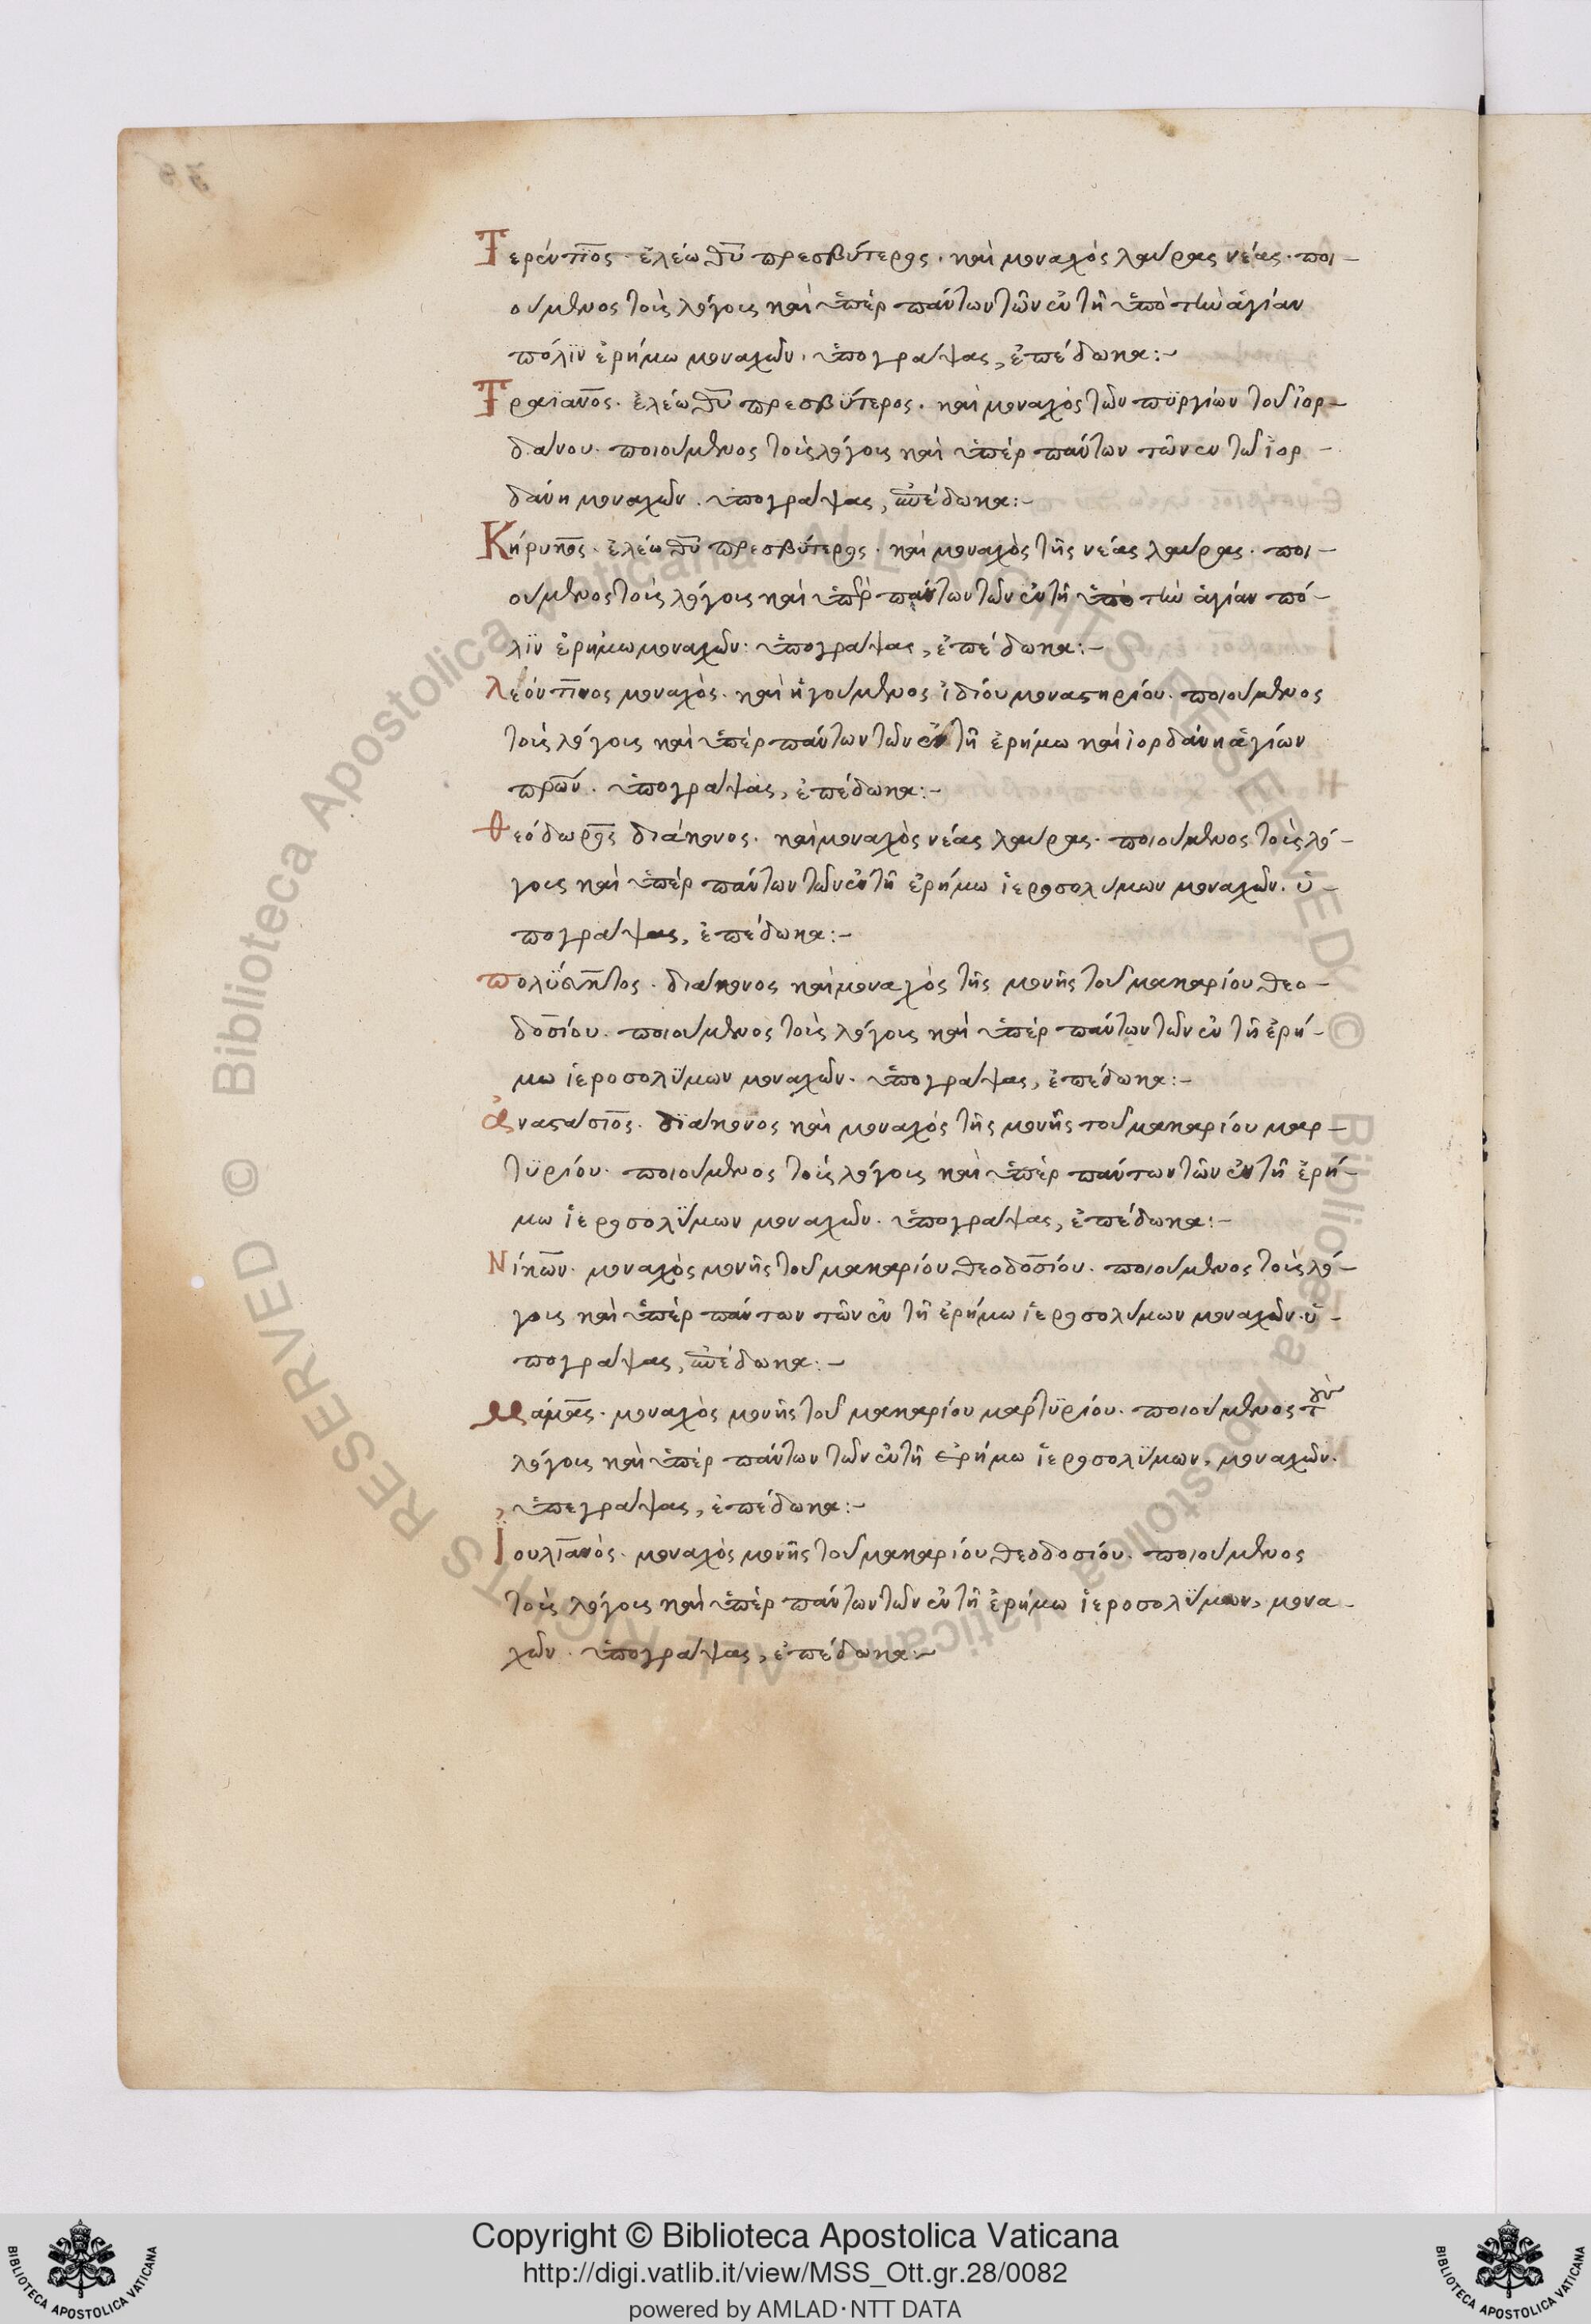 Τερέντιος· ἐλέω θυ πρεσβύτερος· καὶ μοναχὸς λαύρας νέας· ποι-
ούμενος τοὺς λόγους καὶ ὑπὲρ πάντων τῶν ἐν τῆ ὑπὸ τὴν ἁγίαν
πόλϊν ἐρήμω μοναχῶν· ὑπογράψας, ἐπέδωκα:-
Τραϊανος· ἐλέω θυ πρεσβΰτερος· καὶ μοναχὸς τῶν πϋργίων τοῦ ἰορ-
δάνου· ποιούμενος τοὺς λόγους καὶ ὑπὲρ πάντων τῶν ἐν τῶ ἰορ-
δάνη μοναχῶν· ὑπογράψας, ἐπέδωκα:-
Κήρυκος· ἐλέω θυ πρεσβύτερος· καὶ μοναχὸς τῆς νέας λαύρας· ποι-
ούμενος τοὺς λόγους καὶ ὑπὲρ πάντων τῶν ἐν τῆ ὑπὸ τὴν ἁγίαν πό-
λϊν ἐρήμω μοναχῶν· ὑπογράψας, ἐπέδωκα:-
λεόντιος μοναχὸς· καὶ ἡγούμενος ἰδίου μοναστηρίου· ποιούμενος
τοὺς λόγους καὶ ὑπὲρ πάντων τῶν ἐν τῆ ἐρήμω καὶ ἰορδάνη ἁγίων
πρων· ὑπογράψας, ἐπέδωκα:-
θεόδωρος διάκονος· καὶ μοναχὸς νέας λαύρας· ποιούμενος τοὺς λό-
γους καὶ ὑπὲρ πάντων τῶν ἐν τῆ ἐρήμω ἱεροσολύμων μοναχῶν· ὑ-
πογράψας, ἐπέδωκα:-
διάκονος καὶ μοναχὸς τῆς μονῆς τοῦ μακαρίου θεο-
δοσίου· ποιούμενος τοὺς λόγους καὶ ὑπὲρ πάντων τῶν ἐν τῆ ἐρή-
μω ἱεροσολΰμων μοναχῶν· ὑπογράψας, ἐπέδωκα:-
ἀναστάσιος· δϊάκονος καὶ μοναχὸς τῆς μονῆς τοῦ μακαρίου μαρ-
τϋρίου· ποιούμενος τοὺς λόγους καὶ ὑπὲρ πάντων τῶν ἐν τῆ ἐρή-
μω ἱεροσολΰμων μοναχῶν· ὑπογράψας, ἐπέδωκα:-
Νίκων· μοναχὸς μονῆς τοῦ μακαρίου θεοδοσίου· ποιούμενος τοὺς λό-
γους καὶ ὑπὲρ πάντων τῶν ἐν τῆ ἐρήμω ἱεροσολύμων μοναχῶν· ὑ-
πογράψας, ἐπέδωκα:-
Μάμας· μοναχὸς μονῆς τοῦ μακαρίου μαρτϋρίου· ποιούμενος τοὺς
λόγους καὶ ὑπὲρ πάντων τῶν ἐν τῆ ἐρήμω ἱεροσολΰμων, μοναχῶν·
ὑπεγράψας, ἐπέδωκα:-
Ϊουλιανὸς· μοναχὸς μονῆς τοῦ μακαρίου θεοδοσίου· ποιούμενος
τοὺς λόγους καὶ ὑπὲρ πάντων τῶν ἐν τῆ ἐρήμω ἱεροσολΰμων, μονα-
χῶν· ὑπογράψας, ἐπέδωκα:-
© Biblioteca Apostolica Vaticana ALL RIGHTS RESERVED
© Biblioteca Apostolica Vaticana ALL RIGHTS RESERVED
Copyright © Biblioteca Apostolica Vaticana
http://digi.vatlib.it/view/MSS_Ott.gr.28/0082
powered by AMLAD·NTT DATA
BIBLIOTECA APOSTOLICA VATICANA
BIBLIOTECA APOSTOLICA VATICANA